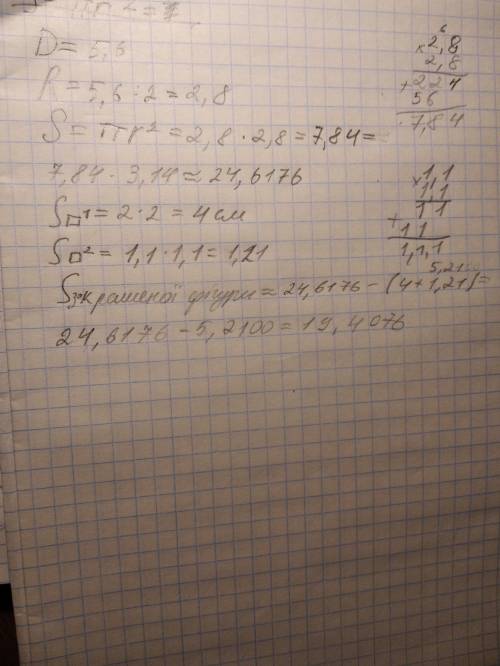 D = 5,6
R = 5,6 : 2 = 2,8
S = πr² = 2,8 · 2,8 = 7,84 =
7,84 · 3,14 ≈ 24,6176
S□¹ = 2 · 2 = 4 см
S□² = 1,1 · 1,1 = 1,21
5,21
Sзакрашеної фігури ≈ 24,6176 – (4 + 1,21) =
24,6176 – 5,2100 = 19,4076
6
× 2,8
2,8
+ 224
56
7,84
× 1,1
1,1
+ 11
11
1,1,1